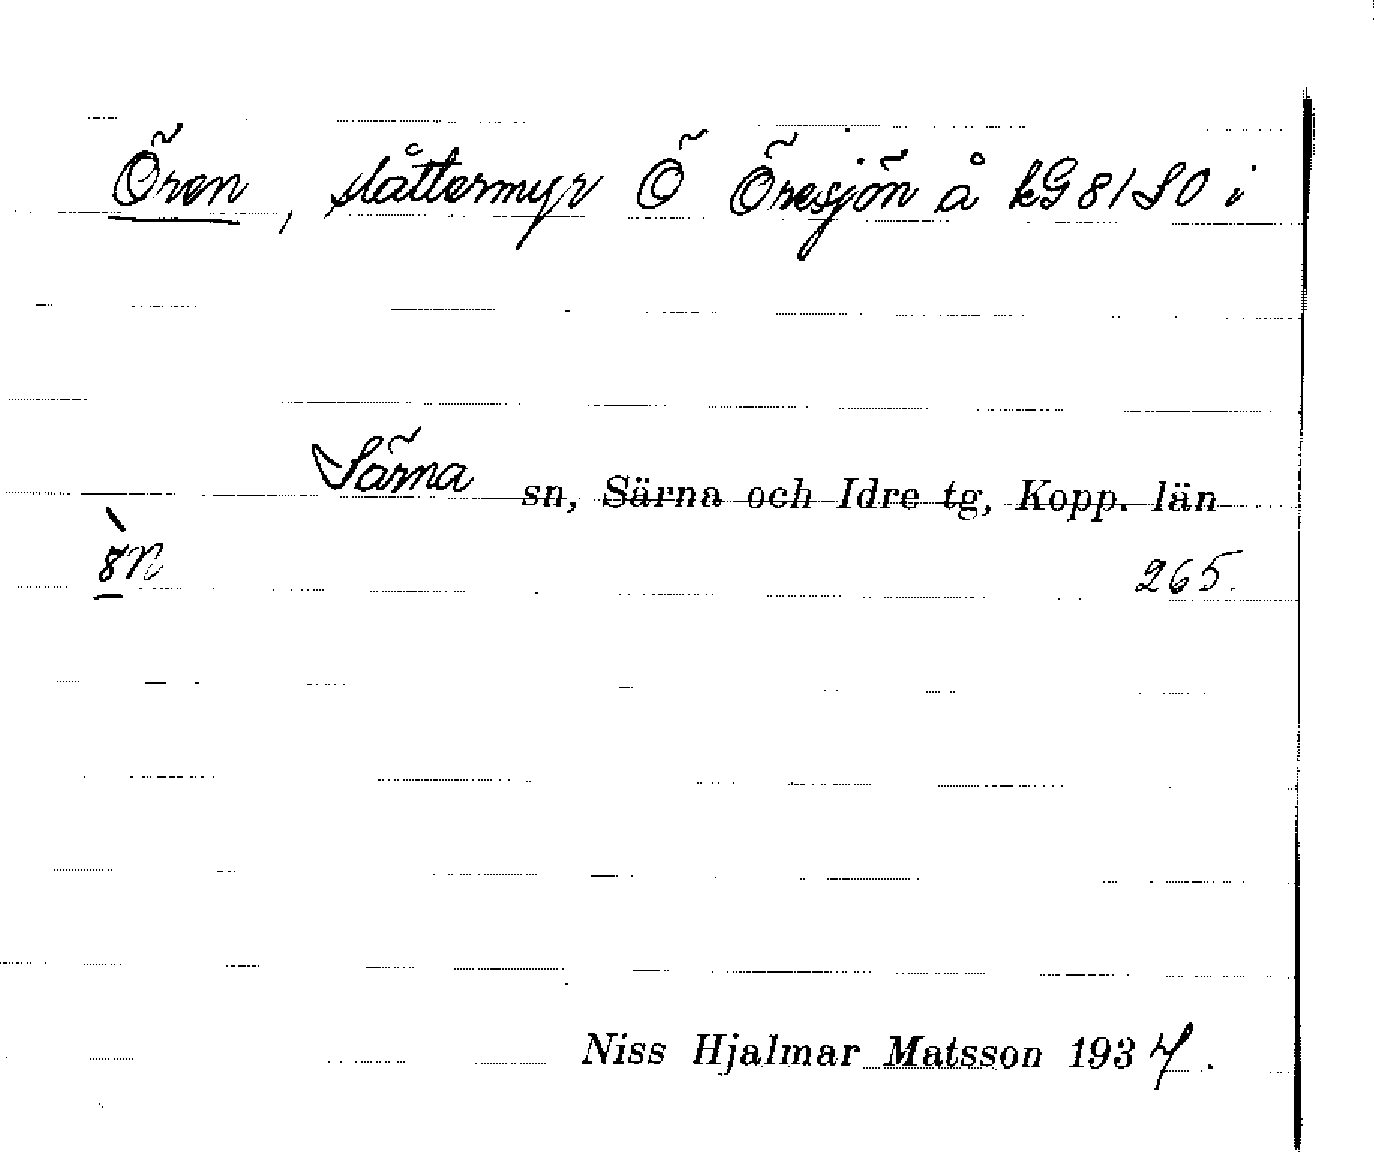 Ören, slåttermyr Ö Öresjön å kG 81 SO i
Särna sn, Särna och Idre tg, Kopp. län
8N
265.
Niss Hjalmar Matsson 1934.